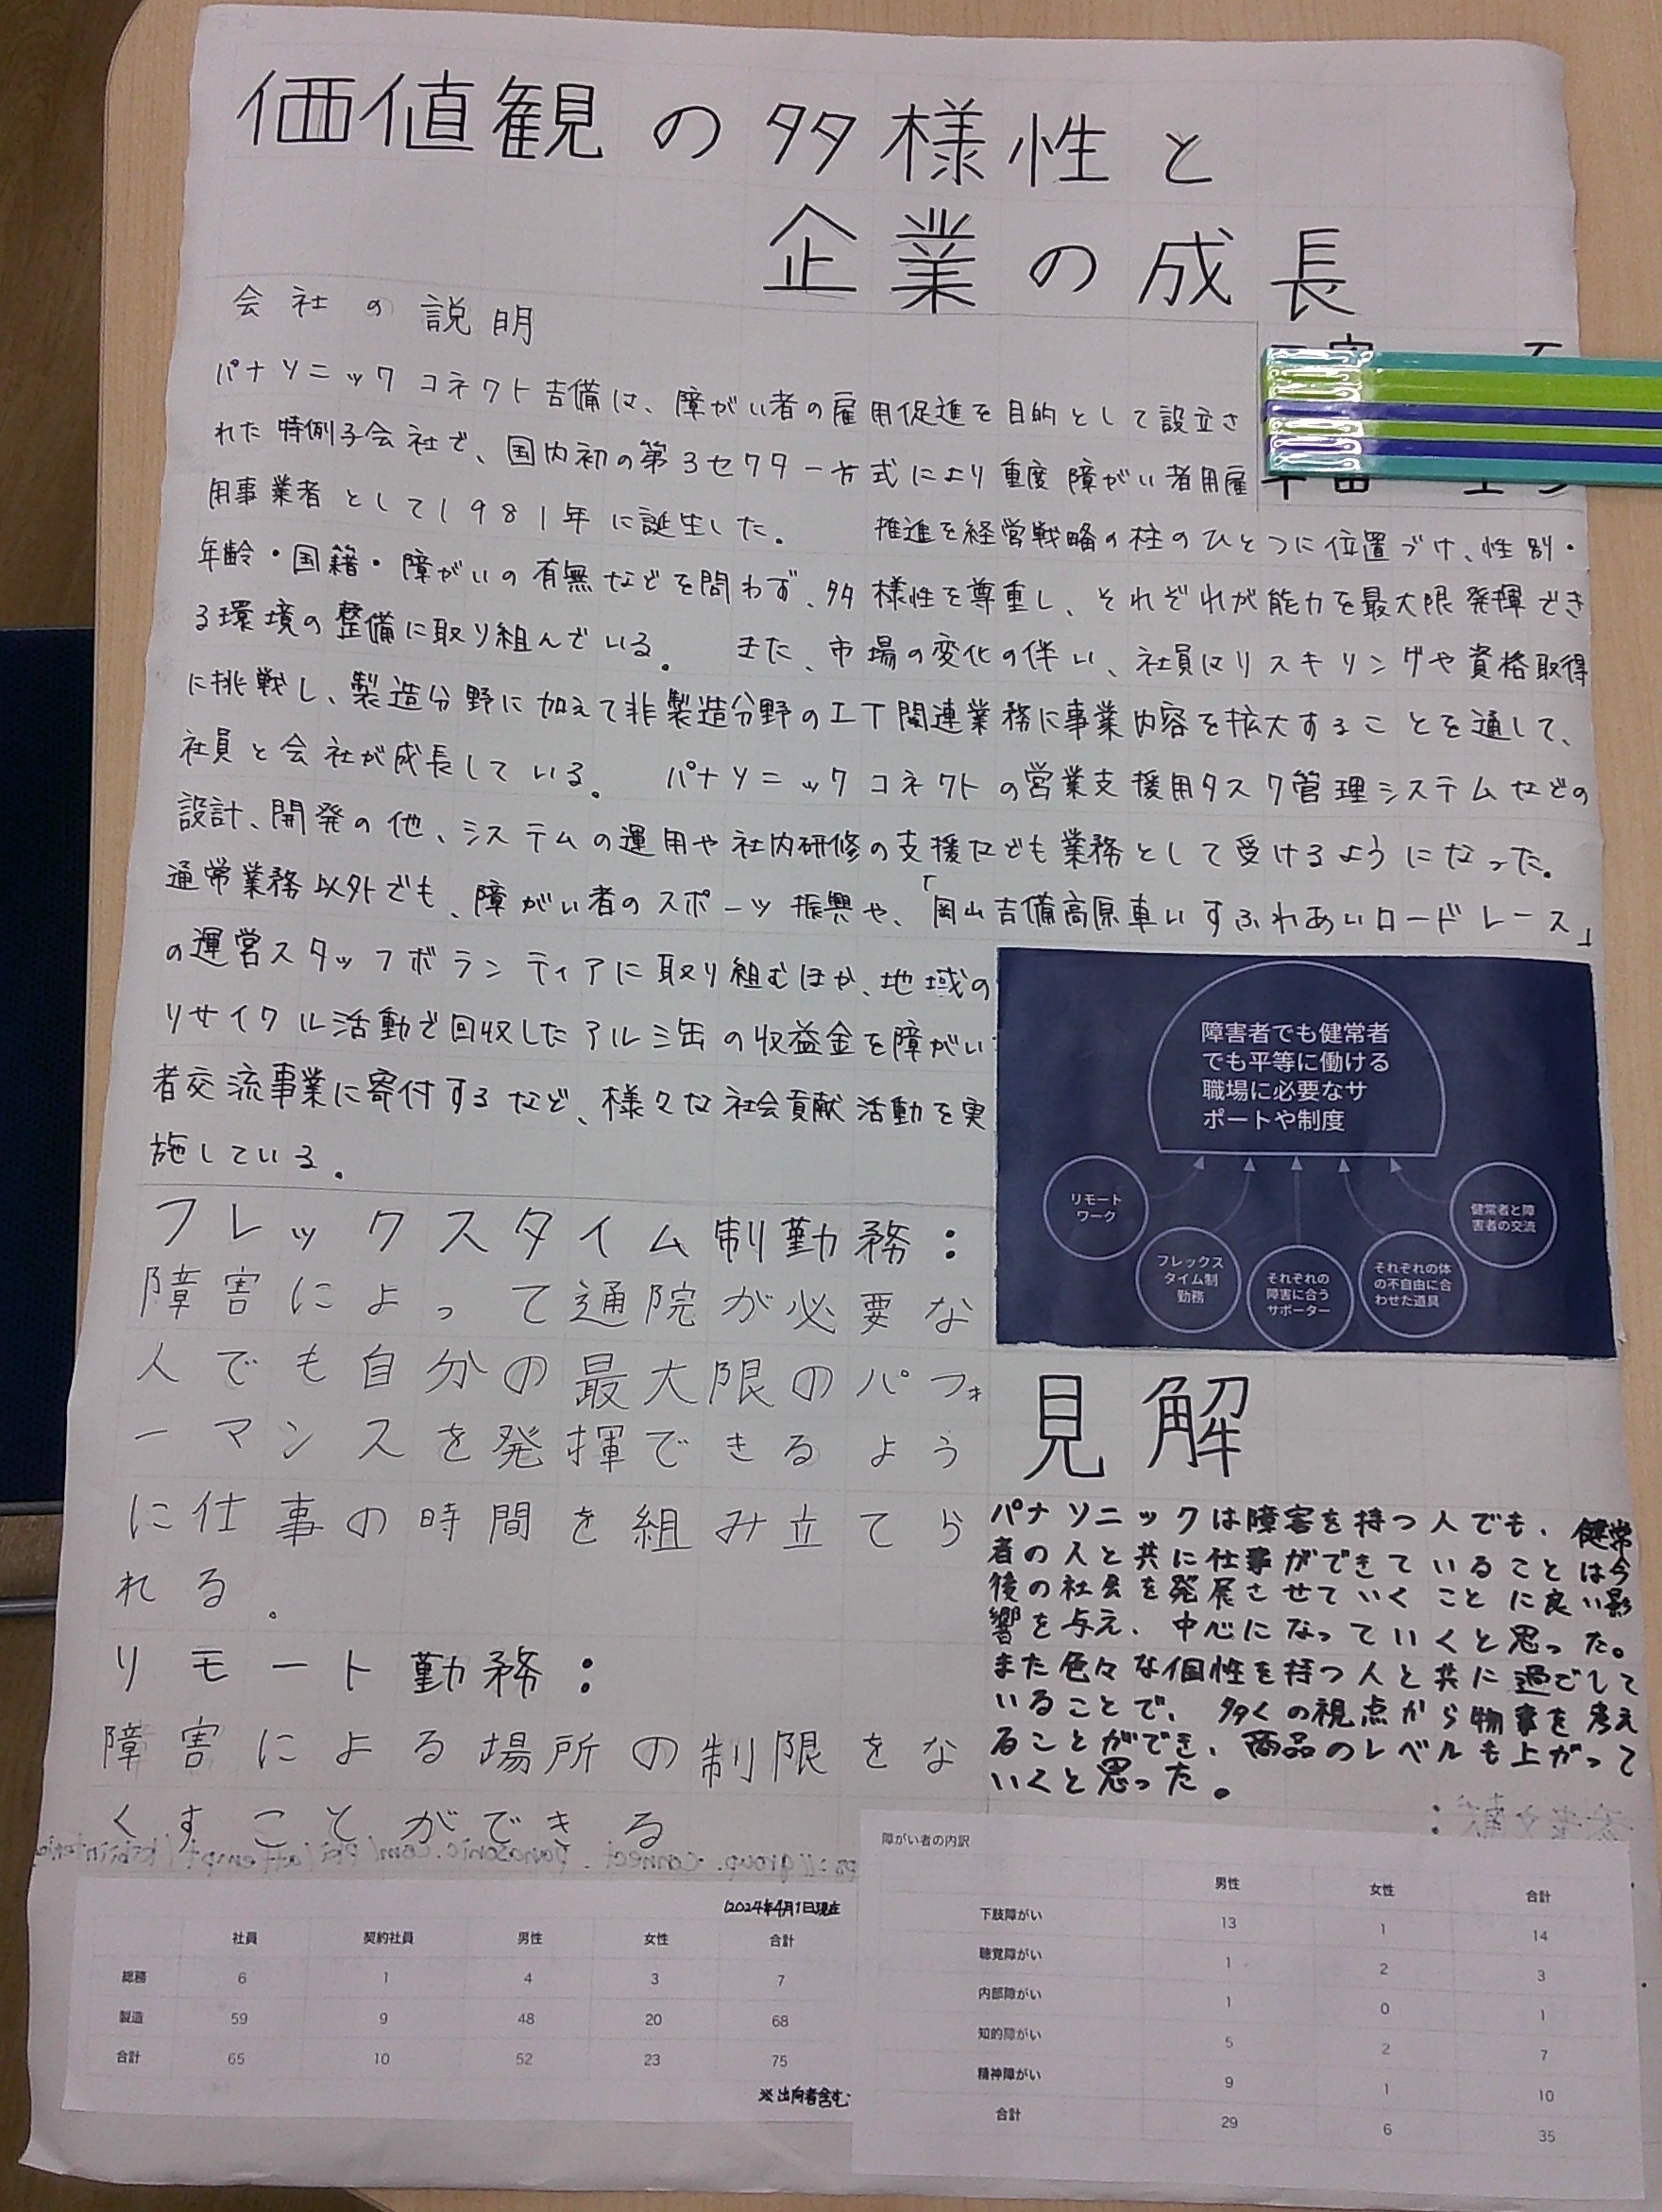 価値観の多様性と
企業の成長
会社の説明
パナソニックコネクト吉備は、障がい者の雇用促進を目的として設立さ
れた特例子会社で、国内初の第3セクター方式により重度障がい者用雇
用事業者として1981年に誕生した。 推進を経営戦略の柱のひとつに位置づけ、性別・
年齢・国籍・障がいの有無などを問わず、多様性を尊重し、それぞれが能力を最大限発揮でき
る環境の整備に取り組んでいる。 また、市場の変化の伴い、社員はリスキリングや資格取得
に挑戦し、製造分野に加えて非製造分野のIT関連業務に事業内容を拡大することを通して、
社員と会社が成長している。 パナソニックコネクトの営業支援用タスク管理システムなどの
設計、開発の他、システムの運用や社内研修の支援なども業務として受けるようになった。
通常業務以外でも、障がい者のスポーツ振興や、「岡山吉備高原車いすふれあいロードレース」
の運営スタッフボランティアに取り組むほか、地域の
リサイクル活動で回収したアルミ缶の収益金を障がい
者交流事業に寄付するなど、様々な社会貢献活動を実
施している。
障害者でも健常者
でも平等に働ける
職場に必要なサ
ポートや制度
リモート
ワーク
フレックス
タイム制
勤務
それぞれの
障害に合う
サポーター
それぞれの体
の不自由に合
わせた道具
健常者と障
害者の交流
フレックスタイム制勤務：
障害によって通院が必要な
人でも自分の最大限のパフォ
ーマンスを発揮できるよう
に仕事の時間を組み立てら
れる。
リモート勤務：
障害による場所の制限をな
くすことができる
見解
パナソニックは障害を持つ人でも、健常
者の人と共に仕事ができていることは今
後の社会を発展させていくことに良い影
響を与え、中心になっていくと思った。
また色々な個性を持つ人と共に過ごして
いることで、多くの視点から物事を考え
ることができ、商品のレベルも上がって
いくと思った。
(2024年4月1日現在
社員 契約社員 男性 女性 合計
総務 6 1 4 3 7
製造 59 9 48 20 68
合計 65 10 52 23 75
※出向者含む
障がい者の内訳
男性 女性 合計
下肢障がい 13 1 14
聴覚障がい 1 2 3
内部障がい 1 0 1
知的障がい 5 2 7
精神障がい 9 1 10
合計 29 6 35